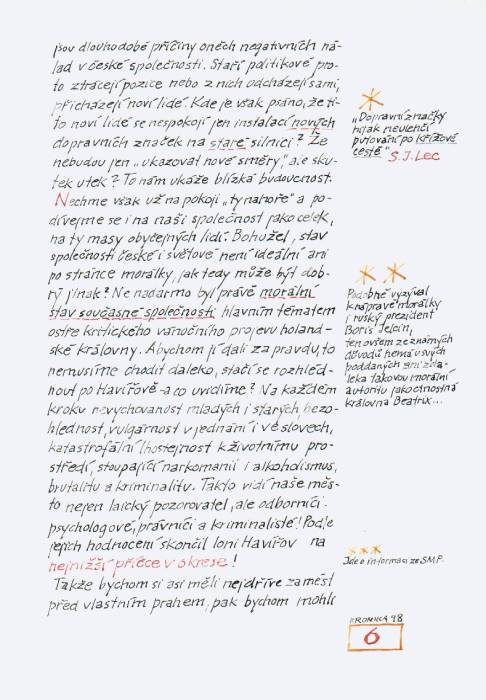 jsou dlouhodobé příčiny oněch negativních ná-
lad v české společnosti. Staří politikové pro-
to ztrácejí pozice nebo z nich odcházejí sami,
přicházejí noví lidé. Kde je však psáno, že ti-
to noví lidé se nespokojí jen instalací nových
dopravních značek na staré silnici? Že
nebudou jen „ukazovat nové směry", ale sku-
tek utek? To nám ukáže blízká budoucnost.
Nechme však už na pokoji „ty nahoře" a po-
dívejme se i na naši společnost jako celek,
na ty masy obyčejných lidí. Bohužel, stav
společnosti české i světové není ideální ani
po stránce morálky, jak tedy může být dob-
rý jinak? Ne nadarmo byl právě morální
stav současné společnosti hlavním tématem
ostře kritického vánočního projevu holand-
ské královny. Abychom jí dali za pravdu, to
nemusíme chodit daleko, stačí se rozhléd-
nout po Havířově - a co uvidíme? Na každém
kroku nevychovanost mladých i starých, bezo-
hlednost, vulgárnost v jednání i ve slovech,
katastrofální lhostejnost k životnímu pro-
středí, stoupající narkomanii i alkoholismus,
brutalitu a kriminalitu. Takto vidí naše měs-
to nejen laický pozorovatel, ale odborníci.
psychologové, právníci a kriminalisté! Podle
jejich hodnocení skončil loni Havířov na
nejnižší příčce v okrese!
Takže bychom si asi měli nejdříve zamést
před vlastním prahem, pak bychom mohli
*
„Dopravní značky
nijak neulehčí
putování po křížové
cestě" S.J. Lec
* *
Podobně vyzýval
k nápravě morálky
i ruský prezident
Boris Jelcin,
ten ovšem ze známých
důvodů nemá u svých
poddaných ani zda-
leka takovou morální
autoritu jako ctnostná
královna Beatrix...
***
Jde o informaci ze SMP.
KRONIKA 98
6